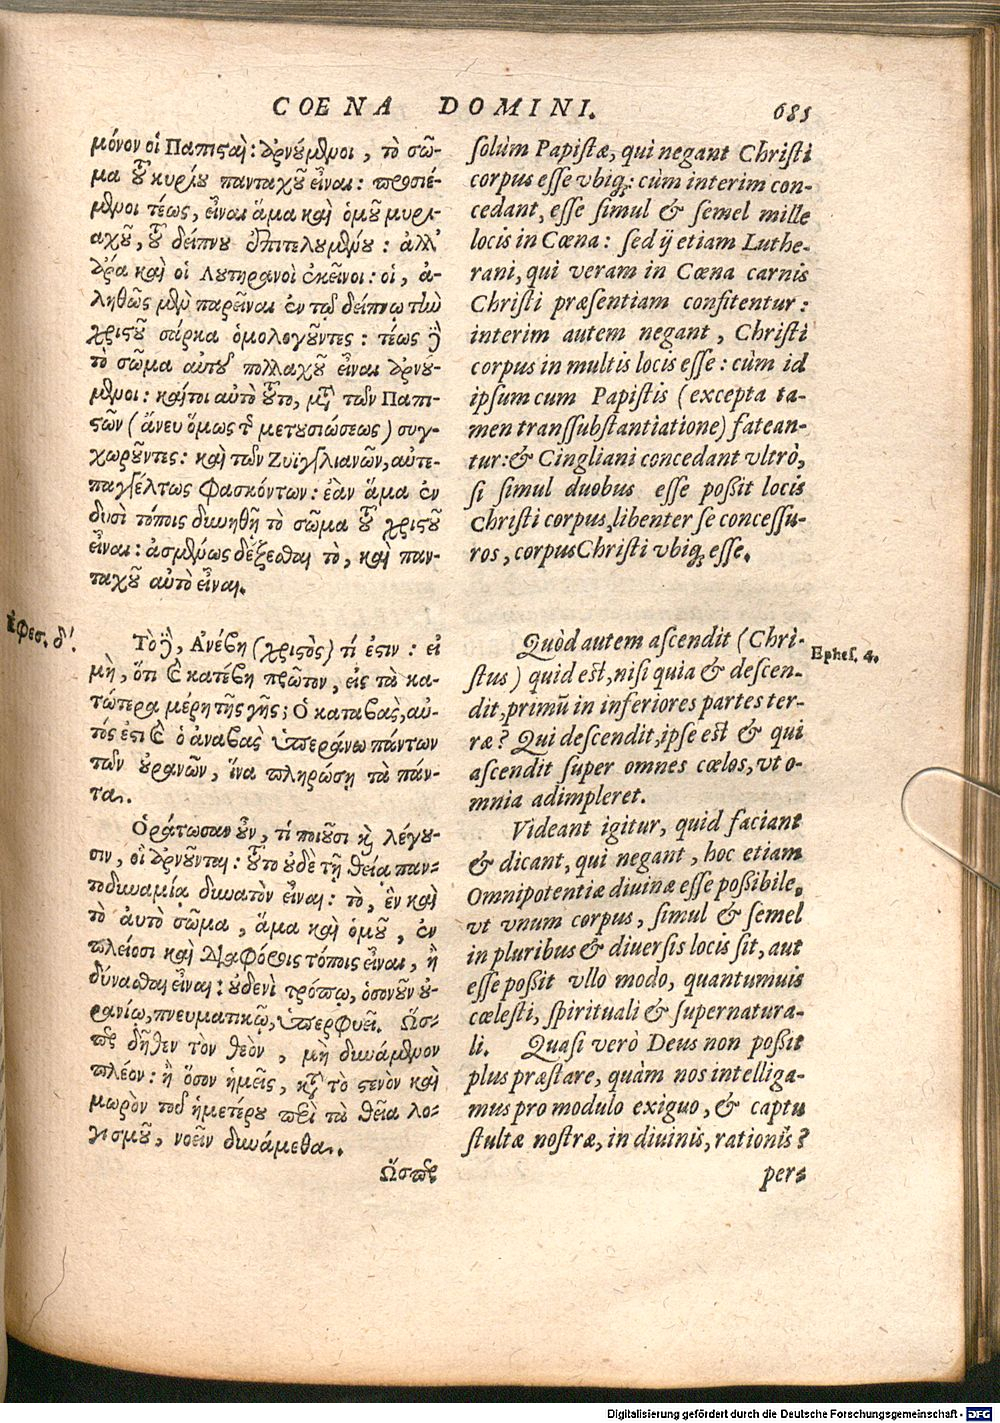 COENA DOMINI.
681
μόνον οἱ Παπισταὶ: ἀρνύμενοι, τὸ σῶ-
μα τοῦ κυρίου πανταχοῦ εἶναι: προσιέ-
μενοι τέως, εἶναι ἅμα καὶ ὁμοῦ μυρι-
αχοῦ, τοῦ δείπνου ἐπιτελουμένου: ἀλλ'
ἄρα καὶ οἱ Λυτηρανοὶ ἐκεῖνοι: οἱ, ἀ-
ληθῶς μὲν παρεῖναι ἐν τῷ δείπνῳ τὴν
χριστοῦ σάρκα ὁμολογοῦντες: τέως δὲ
τὸ σῶμα αὐτοῦ πολλαχοῦ εἶναι ἀρνύ-
μενοι: καίτοι αὐτὸ τοῦτο, μετὰ τῶν Παπι-
στῶν (ἄνευ ὅμως τῆς μετουσιώσεως) συγ-
χωροῦντες: καὶ τῶν Ζυϊγγλιανῶν, αὐτε-
παγγέλτως φασκόντων: ἐὰν ἅμα ἐν
δυσὶ τόποις δυνηθῇ τὸ σῶμα τοῦ χριστοῦ
εἶναι: ἀσμένως δέξεσθαι τὸ, καὶ παν-
ταχοῦ αὐτὸ εἶναι.
Ἐφεσ. δ'.
Τὸ δὲ, Ἀνέβη (χριστὸς) τί ἐστιν: εἰ
μὴ, ὅτι καὶ κατέβη πρῶτον, εἰς τὰ κα-
τώτερα μέρη τῆς γῆς; Ὁ καταβὰς, αὐ-
τός ἐστι καὶ ὁ ἀναβὰς ὑπεράνω πάντων
τῶν οὐρανῶν, ἵνα πληρώσῃ τὰ πάν-
τα.
Ὁράτωσαν οὖν, τί ποιοῦσι καὶ λέγου-
σιν, οἳ ἀρνοῦνται: τοῦτο οὐδὲ τῇ θείᾳ παν-
τοδυναμίᾳ δυνατὸν εἶναι: τὸ, ἓν καὶ
τὸ αὐτὸ σῶμα, ἅμα καὶ ὁμοῦ, ἐν
πλείοσι καὶ διαφόροις τόποις εἶναι, ἢ
δύνασθαι εἶναι: οὐδενὶ τρόπῳ, ὁσονοῦν οὐ-
ρανίῳ, πνευματικῷ, ὑπερφυεῖ. Ὥσ-
περ δῆθεν τὸν θεὸν, μὴ δυνάμενον
πλέον: ἢ ὅσον ἡμεῖς, κατὰ τὸ στενὸν καὶ
μωρὸν τοῦ ἡμετέρου περὶ τὰ θεῖα λο-
γισμοῦ, νοεῖν δυνάμεθα.
Ὥσπερ
solùm Papistæ, qui negant Christi
corpus esse vbiq;: cùm interim con-
cedant, esse simul & semel mille
locis in Cœna: sed ij etiam Luthe-
rani, qui veram in Cœna carnis
Christi præsentiam confitentur:
interim autem negant, Christi
corpus in multis locis esse: cùm id
ipsum cum Papistis (excepta ta-
men transsubstantiatione) fatean-
tur: & Cingliani concedant vltrò,
si simul duobus esse poßit locis
Christi corpus, libenter se concessu-
ros, corpus Christi vbiq; esse.
Quòd autem ascendit (Chri-
stus) quid est, nisi quia & descen-
dit, primū in inferiores partes ter-
ræ? Qui descendit, ipse est & qui
ascendit super omnes cœlos, vt o-
mnia adimpleret.
Ephes. 4.
Videant igitur, quid faciant
& dicant, qui negant, hoc etiam
Omnipotentiæ diuinæ esse poßibile,
vt vnum corpus, simul & semel
in pluribus & diuersis locis sit, aut
esse poßit vllo modo, quantumuis
cœlesti, spirituali & supernatura-
li. Quasi verò Deus non poßit
plus præstare, quàm nos intelliga-
mus pro modulo exiguo, & captu
stultæ nostræ, in diuinis, rationis?
per-
Digitalisierung gefördert durch die Deutsche Forschungsgemeinschaft - DFG